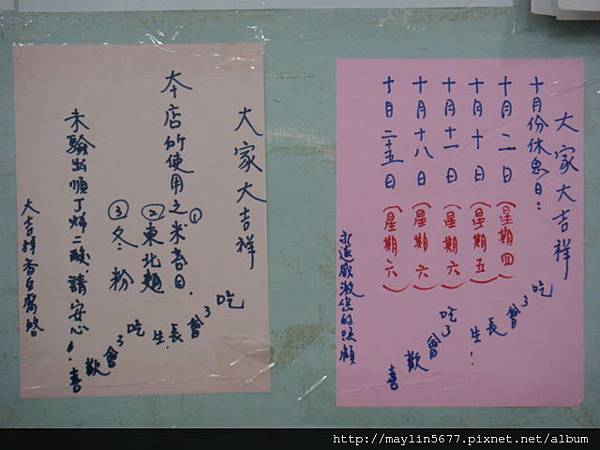 大家大吉祥
十月份休息日：
十月二日（星期四）
十月十日（星期五）
十月十一日（星期六）
十月十八日（星期六）
十月二十五日（星期六）
吃了會長生！
吃了會歡喜
永遠感激您的照顧
大家大吉祥
本店所使用之①米苔目.
②東北麵
③冬粉
未驗出順丁烯二酸.請安心!
吃了會長生.
吃了會歡喜
大吉祥香豆富啓
http://maylin5677.pixnet.net/album